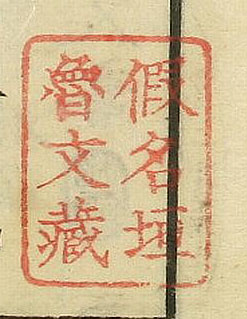 假名垣
魯文藏